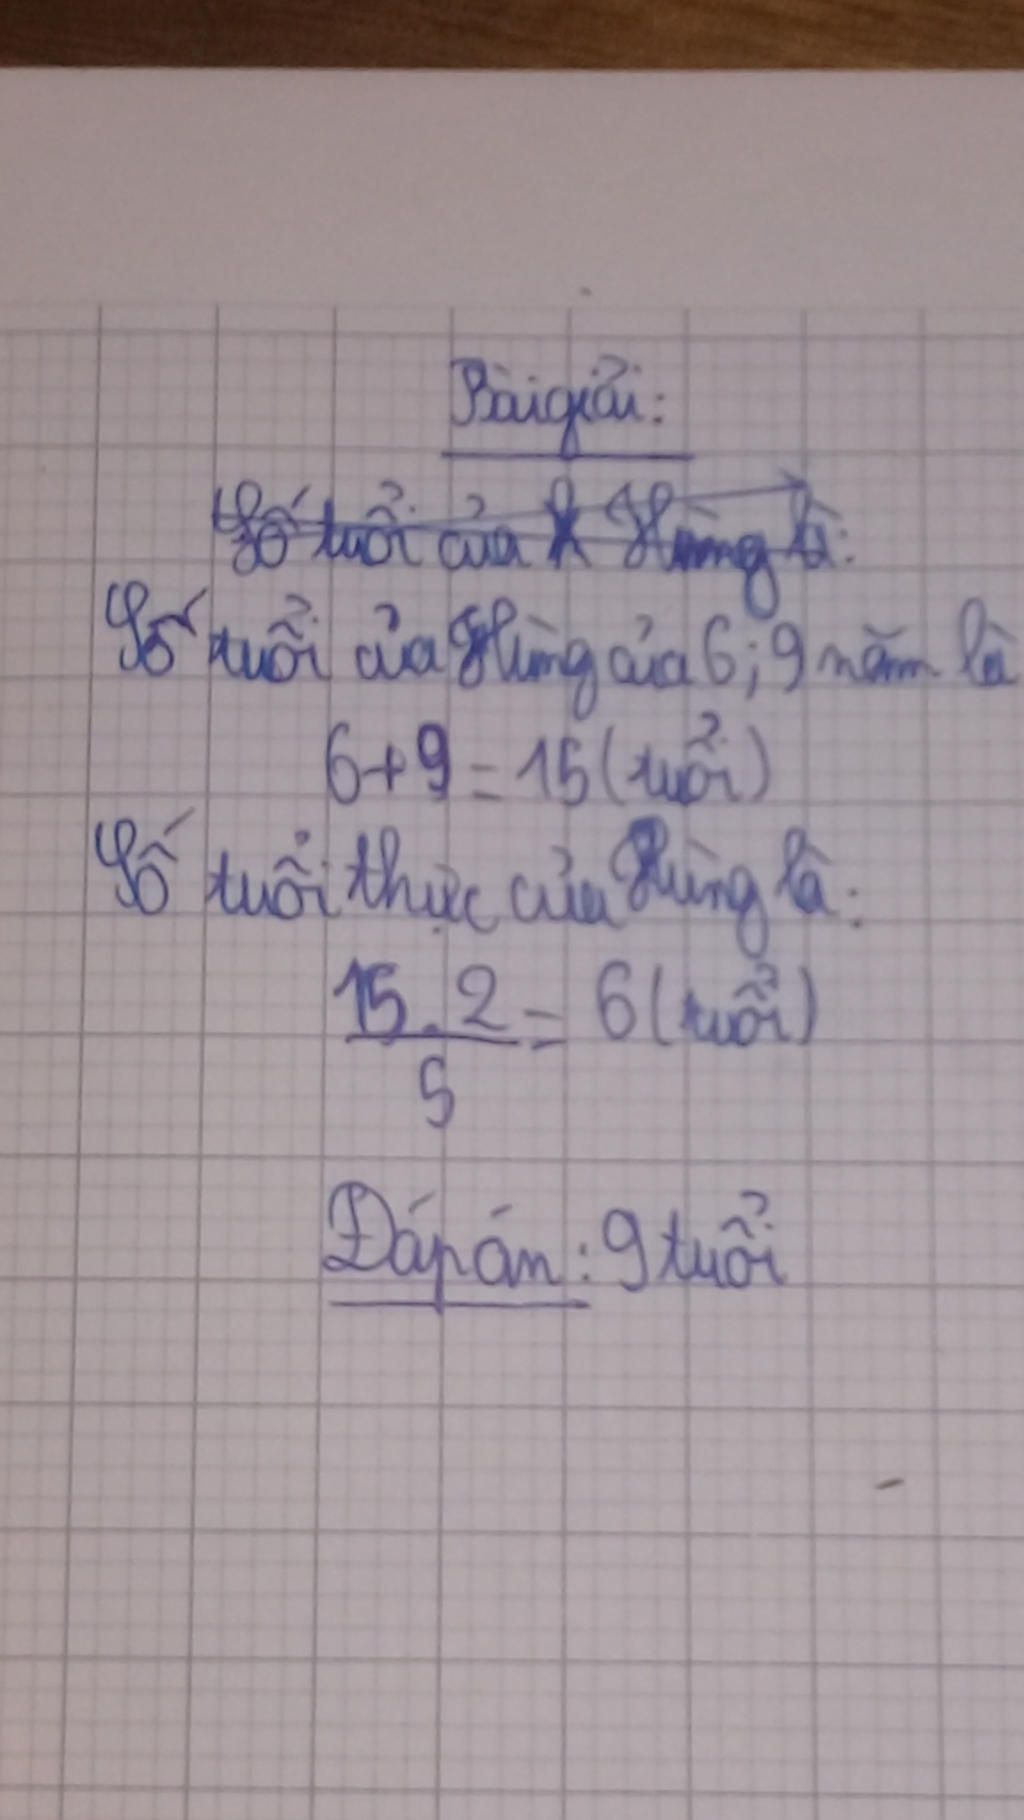 Bài giải:
Số tuổi của Hùng là:
Số tuổi của Hùng của 6; 9 năm là
6+9=15(tuổi)
Số tuổi thực của Hùng là:
15.2/5 = 6(tuổi)
Đáp án: 9 tuổi